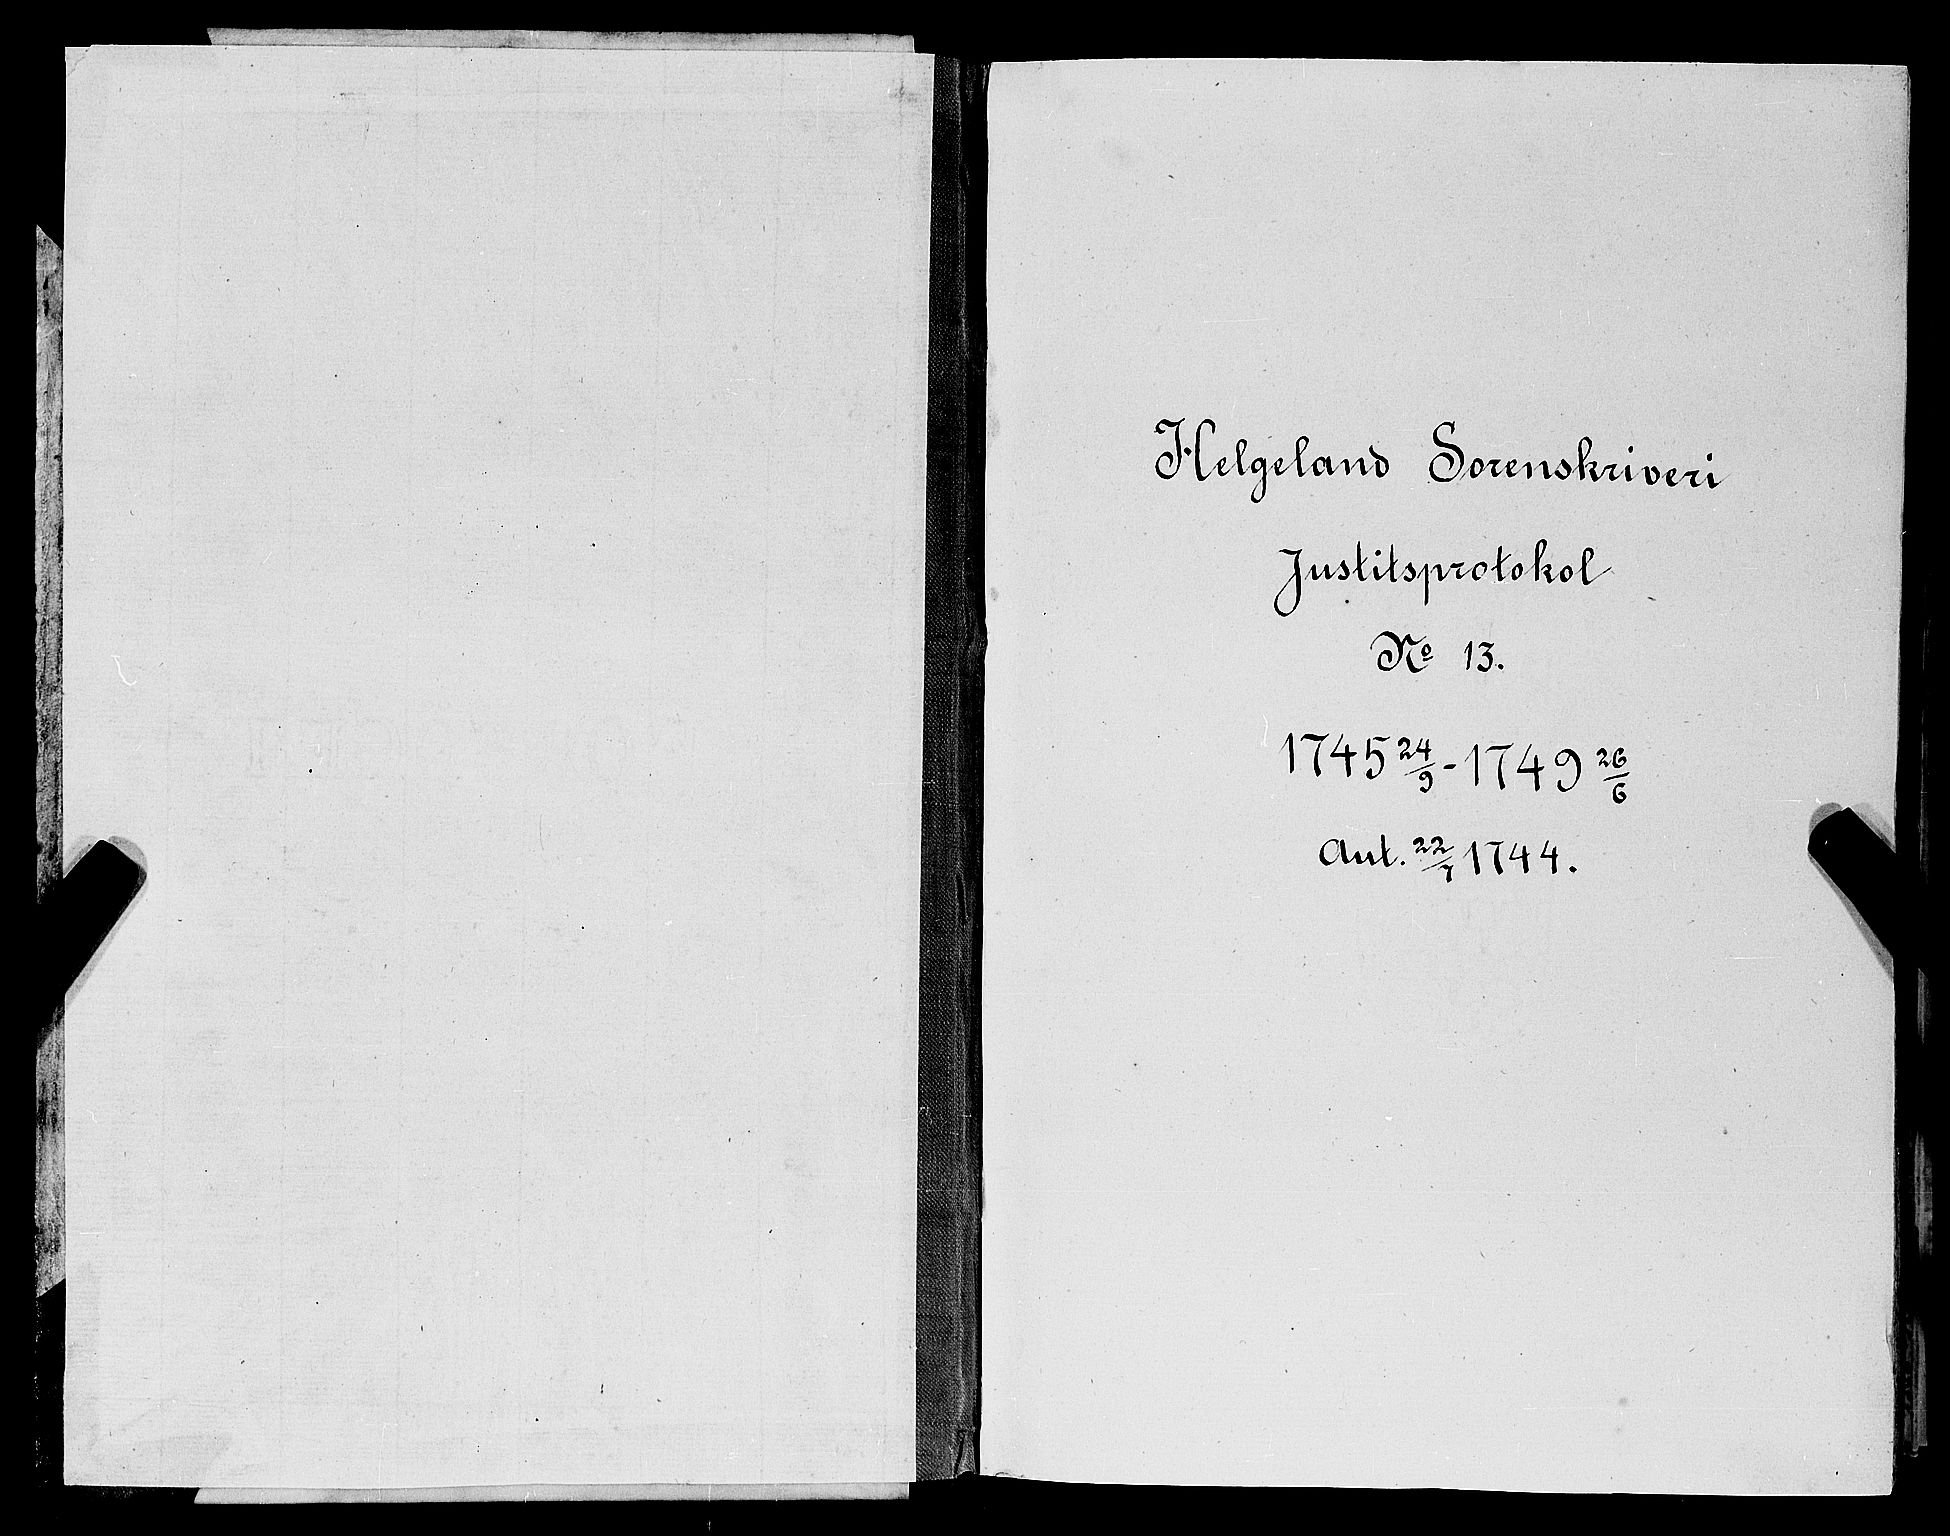 Helgeland Sorenskriveri
Justitsprotokol
No 13.
1745 24/9 - 1749 26/6
Aut. 22/7 1744.